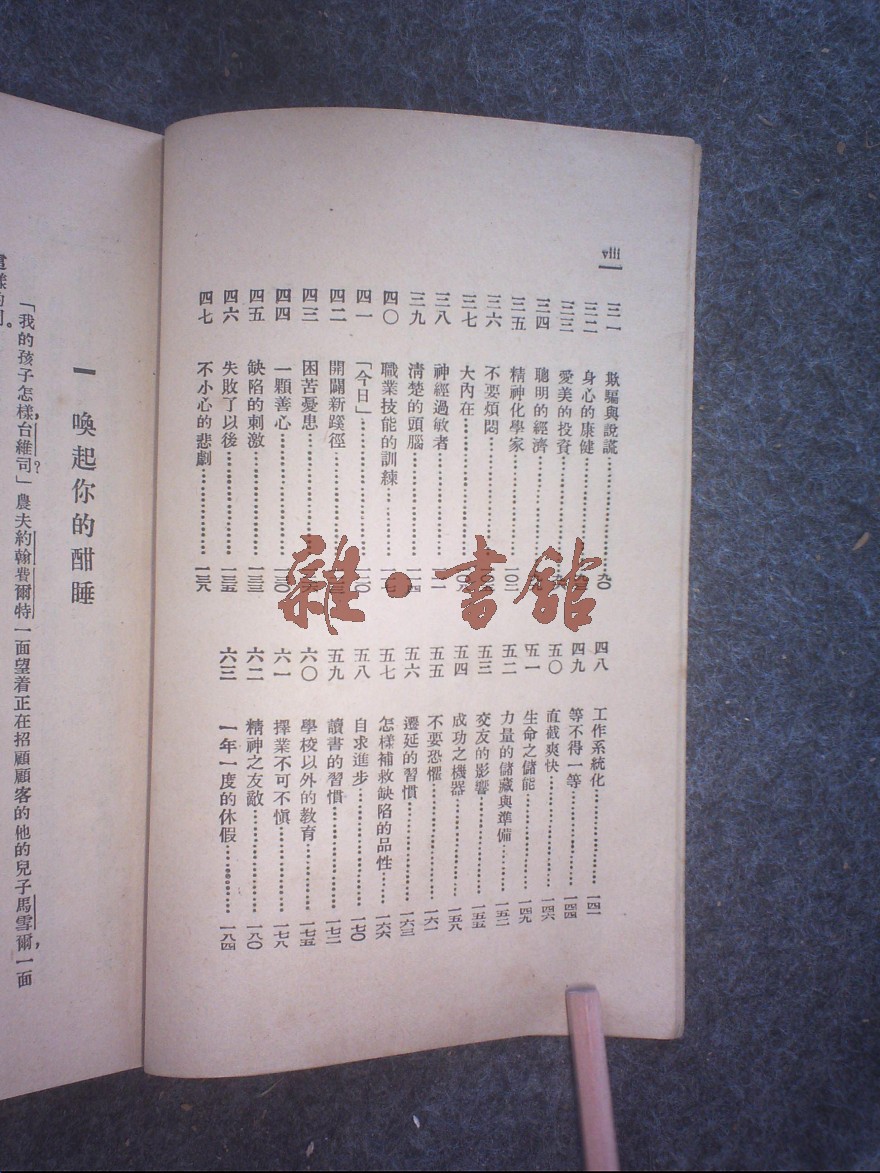 viii
三一 欺騙與說謊………………九〇
三二 身心的康健………………
三三 愛美的投資………………
三四 聰明的經濟………………
三五 精神化學家………………一〇二
三六 不要煩悶………………
三七 大內在………………一〇八
三八 神經過敏者………………一一一
三九 清楚的頭腦………………一一四
四〇 職業技能的訓練…………一一七
四一 「今日」………………一二〇
四二 開闢新蹊徑………………
四三 困苦憂患………………
四四 一顆善心………………一三〇
四五 缺陷的刺激………………一三三
四六 失敗了以後………………一三五
四七 不小心的悲劇………………一三八
四八 工作系統化………………一四一
四九 等不得一等………………一四四
五〇 直截爽快………………一四六
五一 生命之儲能………………一四九
五二 力量的儲藏與準備………一五二
五三 交友的影響………………一五五
五四 成功之機器………………一五八
五五 不要恐懼………………一六一
五六 遷延的習慣………………一六三
五七 怎樣補救缺陷的品性……一六六
五八 自求進步………………一七〇
五九 讀書的習慣………………一七二
六〇 學校以外的教育…………一七五
六一 擇業不可不慎……………一七八
六二 精神之友敵………………一八〇
六三 一年一度的休假…………一八四
雜·書館
一 喚起你的酣睡
「我的孩子怎樣，台維司？」農夫約翰費爾特一面望着正在招顧顧客的他的兒子馬雪爾，一面